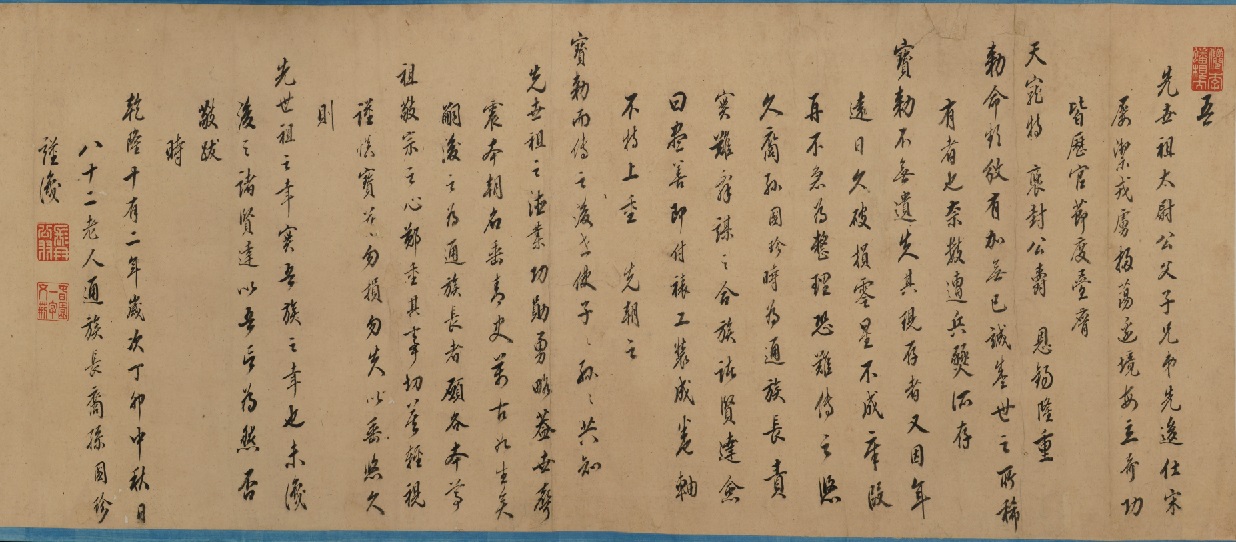 吾
先世祖太尉公父子兄弟先後仕宋
屢禦戎虜掃蕩邊境每立奇功
皆歷官節度臺府
天寵特 褒封公爵 恩錫隆重
勅命頒敘有加無已誠蓋世之所稀
有者也奈數遭兵燹所存
寶勅不無遺失其現存者又因年
遠日久破損零星不成章段
再不急為整理恐難傳之悠
久裔孫國珍時為通族長責
實難辭謀之合族諸賢達僉
曰盡善即付裱工裝成卷軸
不特上重 先朝之
寶勅而傳之後世使子々孫々共知
先世祖之德業功勛勇略蓋世齊
震本朝名垂青史萬古如生矣
嗣後之為通族長者願各本尊
祖敬宗之心鄭重其事切莫輕視
謹慎寶藏勿損勿失以垂悠久
則
先世祖之幸實吾族之幸也未識
後之諸賢達以吾言為然否
敬跋
時
乾隆十有二年歲次丁卯中秋日
八十二老人通族長裔孫國珍
謹識